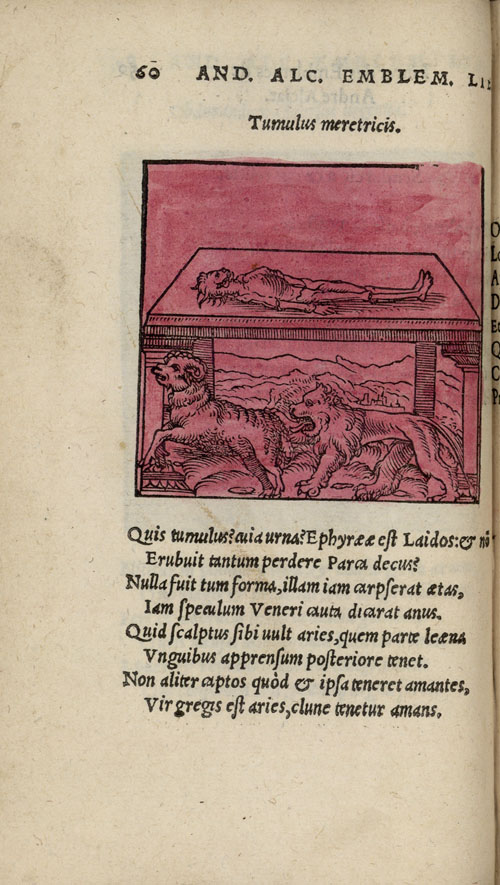 60 AND. ALC. EMBLEM. LI
Tumulus meretricis.
Quis tumulus? cuia urna? Ephyrææ est Laidos: & nō
Erubuit tantum perdere Parca decus?
Nulla fuit tum forma, illam iam carpserat ætas,
Iam speculum Veneri cauta dicarat anus.
Quid scalptus sibi uult aries, quem parte leæna
Vnguibus apprensum posteriore tenet.
Non aliter captos quòd & ipsa teneret amantes,
Vir gregis est aries, clune tenetur amans.